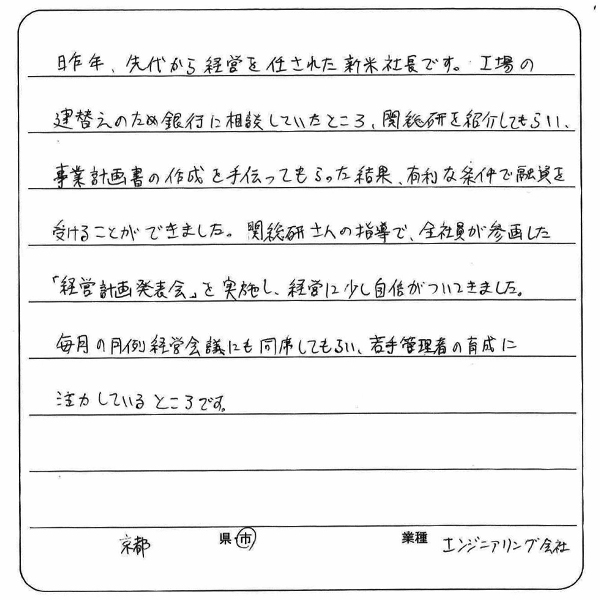 昨年、先代から経営を任された新米社長です。工場の
建替えのため銀行に相談していたところ、関総研を紹介してもらい、
事業計画書の作成を手伝ってもらった結果、有利な条件で融資を
受けることができました。関総研さんの指導で、全社員が参画した
「経営計画発表会」を実施し、経営に少し自信がついてきました。
毎月の月例経営会議にも同席してもらい、若手管理者の育成に
注力しているところです。
京都 県・市 業種 エンジニアリング会社